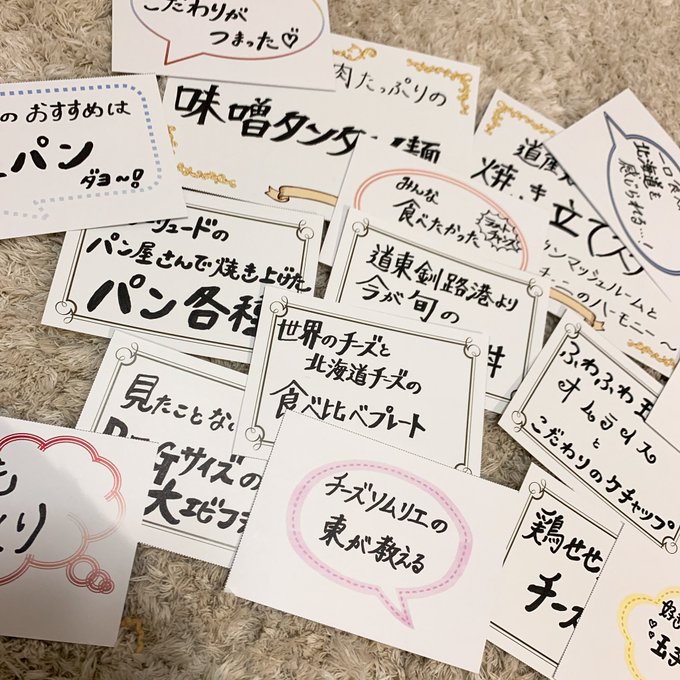 こだわりが
つまった♡
肉たっぷりの
味噌タンタン麺
のおすすめは
パン
ダヨ〜!
みんな
食べたかった
焼き立て
マッシュルームと
ニーのハーモニー〜
一口食べ
北海道を
感じられる…!
パン屋さんで焼き上げた
パン各種
道東釧路港より
今が旬の
世界のチーズと
北海道チーズの
食べ比べプレート
見たことない
サイズの
大エビフ
ふわふわ玉
オムライス
と
こだわりのケチャップ
チーズソムリエの
東が教える
鶏せせ
チーズ